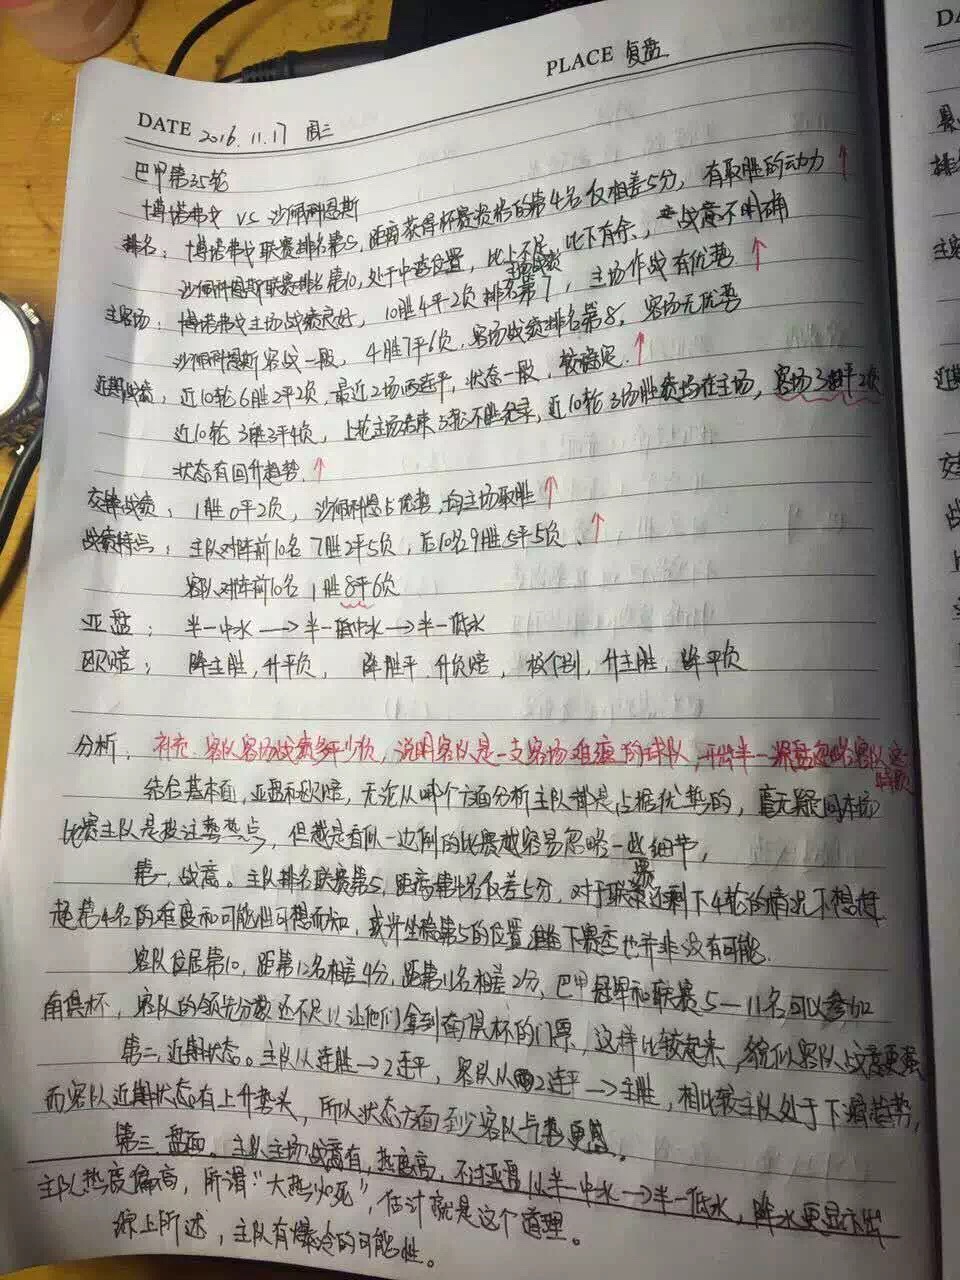 PLACE 复盘
DATE 2016.11.17 周三
巴甲第35轮
博塔弗戈 VS 沙佩科恩斯
排名：博塔弗戈联赛排名第5，距离获得杯赛资格的第4名仅相差5分，有取胜的动力↑
沙佩科恩斯联赛排名第10，处于中游位置，比上不足，比下有余，战意不明确
主客场：博塔弗戈主场战绩良好，10胜4平2负 主场战绩排名第7，主场作战有优势↑
沙佩科恩斯客战一般，4胜7平6负，客场战绩排名第8，客场无优势
近期战绩，近10轮6胜2平2负，最近2场两连平，状态一般，较稳定↑
近10轮3胜3平4负，上轮主场结束3轮不胜纪录，近10轮3场胜绩均在主场，客场3平2负
状态有回升趋势↑
交锋战绩，1胜0平2负，沙佩科恩占优势，均主场取胜↑
战绩特点，主队对阵前10名7胜2平5负，后10名9胜5平5负，↑
客队对阵前10名1胜8平6负
亚盘：半一中水→半一低中水→半一低水
欧赔：降主胜，升平负，降胜平，升负赔，极个别，升主胜，降平负
分析：补充，客队客场战绩多平少负，说明客队是一支客场难赢的球队，开出半一深盘忽略客队这特点
结合基本面，亚盘和欧赔，无论从哪个方面分析主队都是占据优势的，毫无疑问本场
比赛主队是投注热点，但越是看似一边倒的比赛越容易忽略一些细节，
第一，战意。主队排名联赛第5，距离第4名仅差5分，对于联赛还剩下4轮的情况下想超
越第4名的难度和可能性可想而知，或许坐稳第5的位置准备下赛季也并非没有可能.
客队位居第10，距第12名相差4分，距第11名相差2分，巴甲冠军和联赛5—11名可以参加
南俱杯，客队的领先分数还不足以让他们拿到南俱杯的门票，这样比较起来，貌似客队战意更强
第二，近期状态。主队从连胜→2连平，客队从2连平→主胜，相比较主队处于下滑趋势，
而客队近期状态有上升势头，所以状态方面至少客队气势更盛。
第三，盘面。主队主场战意有，热度高，不过亚盘从半一中水→半一低水，降水更显示出
主队热度偏高，所谓“大热必死”，估计就是这个道理。
综上所述，主队有爆冷的可能性。